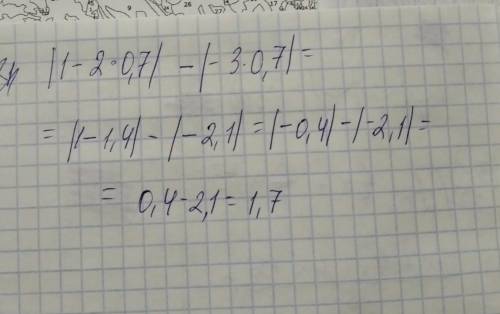 |1-2·0,7| - |-3·0,7| =
= |1-1,4| - |-2,1| = |-0,4| - |-2,1| =
= 0,4-2,1 = 1,7